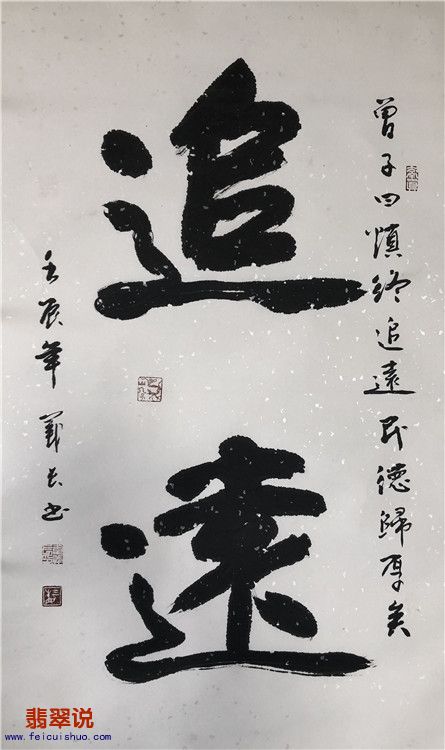 曾子曰慎終追遠民德歸厚矣
追
遠
壬辰年
書
翡翠说
www.feicuishuo.com